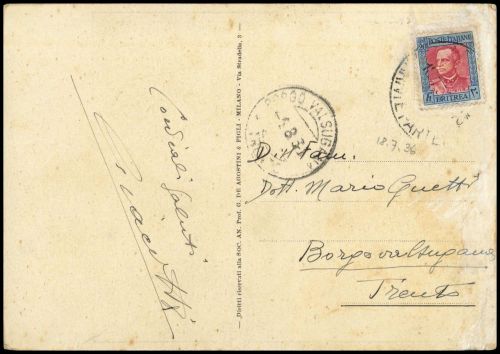 POSTE ITALIANE
ERITREA
12.7.36
BORGO VALSUGANA
Cordiali saluti
Dott. Mario Guetti
Borgo valsugana
Trento
Diritti riservati alla SOC. AN. Prof. G. DE AGOSTINI & FIGLI - MILANO - Via Stradella, 3 -